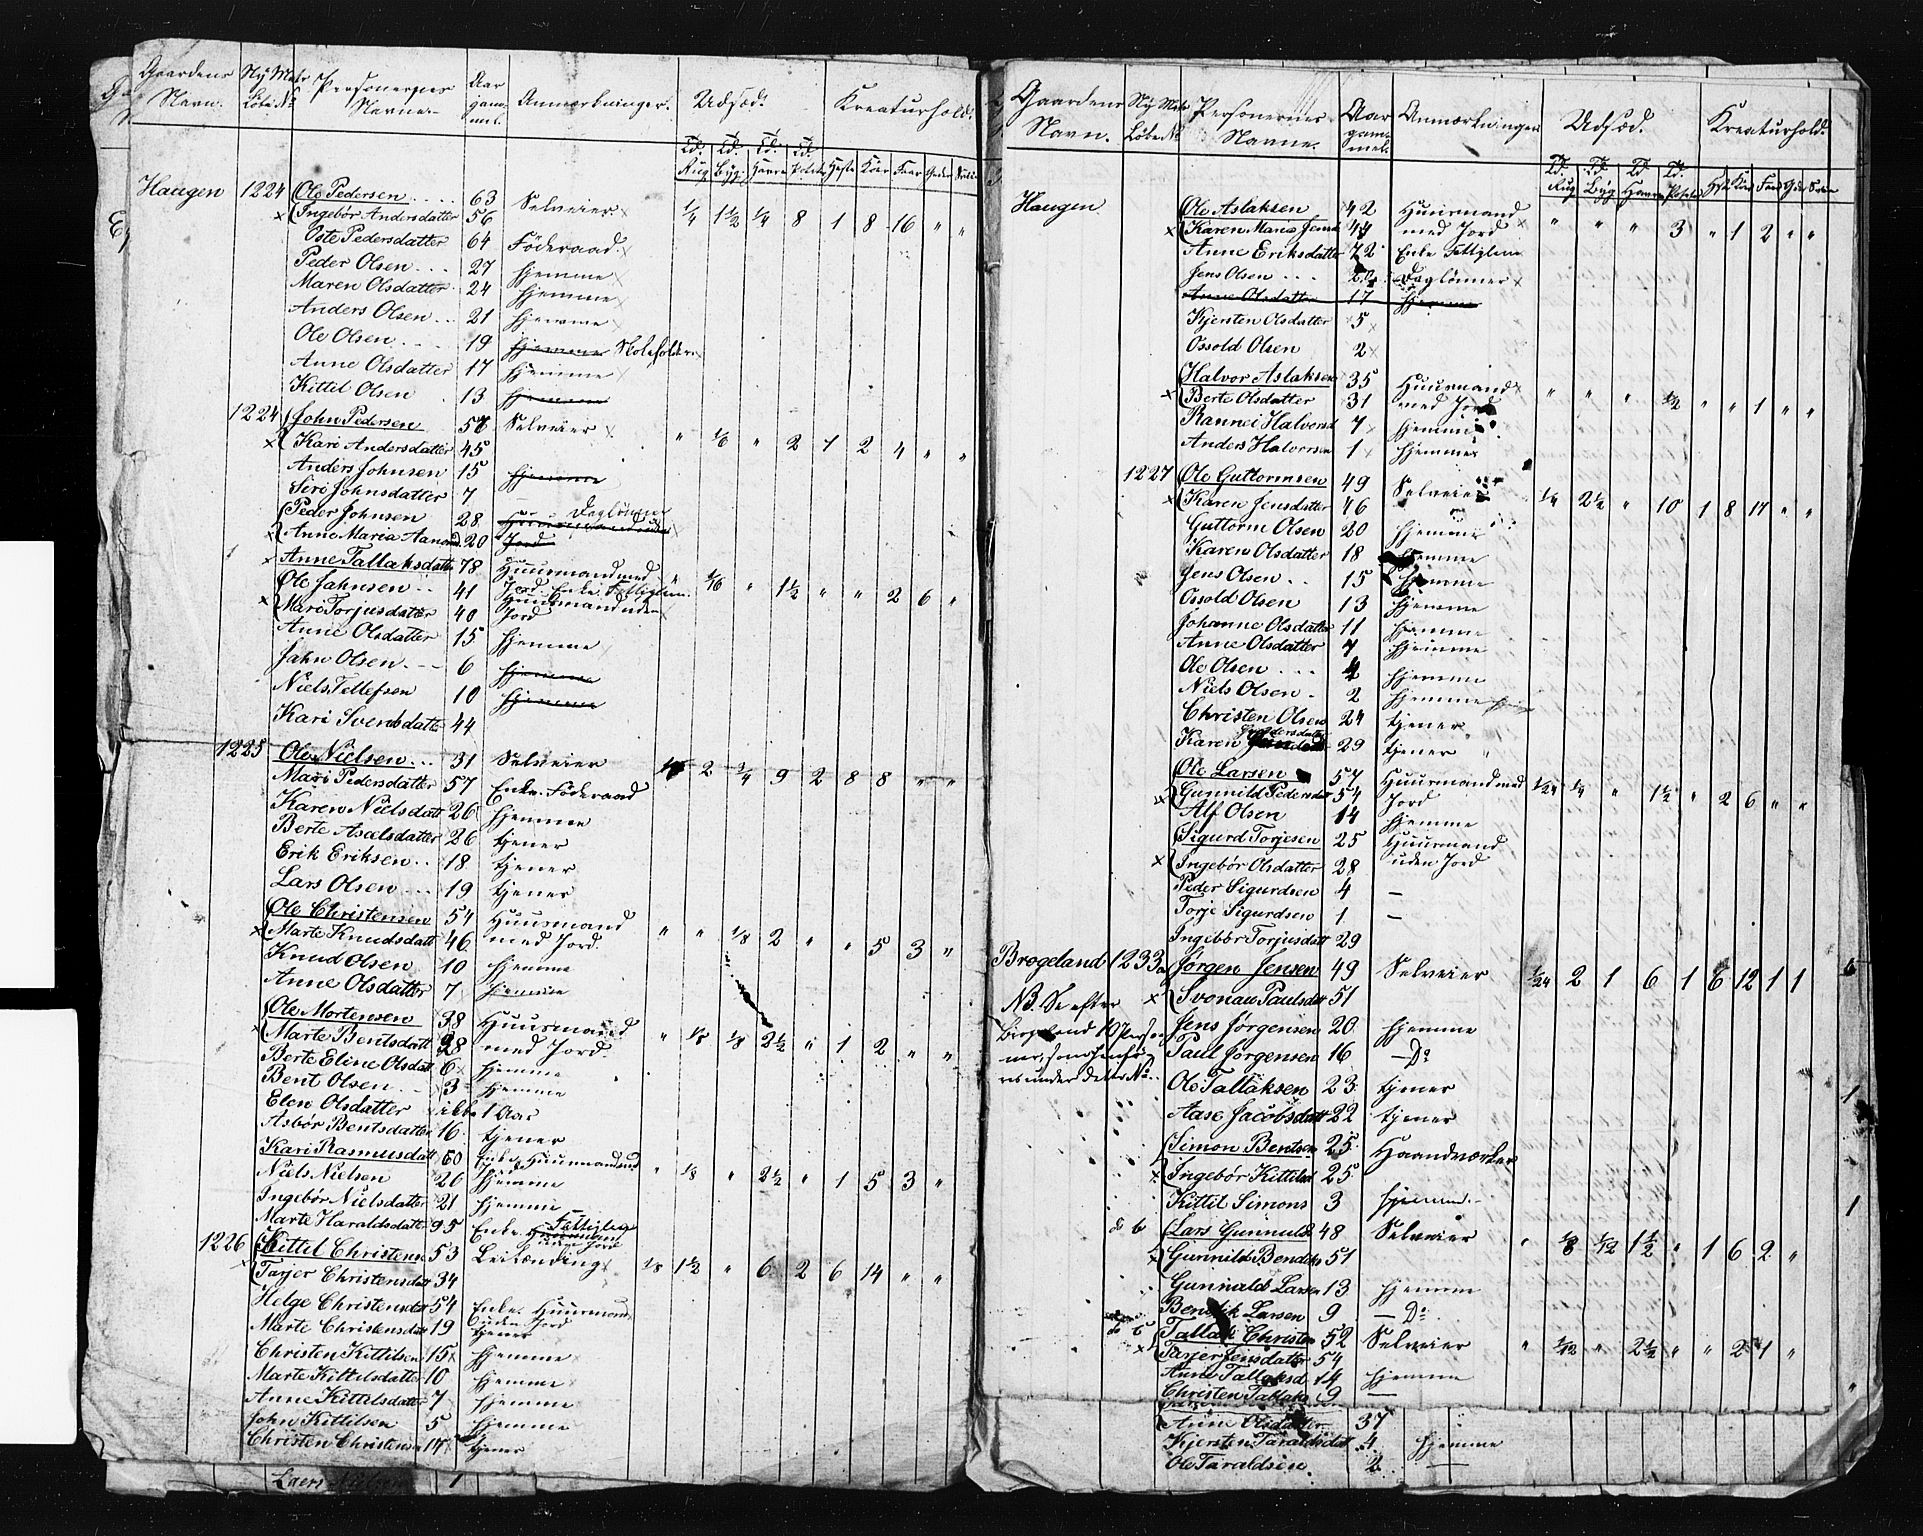 Gaardens Navn. Ny Matr Løbe No Personernes Navne. Aar gammel. Anmærkninger. Udsæd. Kreaturhold.
Td. Rug Td. Byg. Td. Havre Td. Poteter Heste Kiør Faar Geder Sviin
Haugen 1224 Ole Pedersen 63 Selveier 1/4 1 1/2 1/4 8 1 8 16 " "
Ingebör Andersdatter 56
Oste Pedersdatter 64 Föderaad
Peder Olsen 27 hjemme
Maren Olsdatter 24 hjemme
Anders Olsen 21 hjemme
Ole Olsen 19 hjemme Skoleholder
Anne Olsdatter 17 hjemme
Kittil Olsen 13 hjemme
1224 John Pedersen Selveier " 1/6 " 2 1 2 4 " "
Kari Andersdatter 45
Anders Johnsen 15 hjemme
Siri Johnsdatter 7
Peder Johnsen 28 Daglönner
Anne Maria 20 Jord
Anne Tallaksdatter 78 Huusmand med Jord Enke Fattiglem " 1/16 " 1 1/2 " " 2 6 "
Ole Jahnsen 41 Huusmand uden Jord
Mari Torjusdatter 40
Anne Olsdatter 15 hjemme
Jahn Olsen 6 hjemme
Niels Tellefsen 10 hjemme
Kari Svendsdatter 44
1225 Ole Nielsen 31 Selveier 2 1/4 9 2 8 8 " "
Mari Pedersdatter 57 Enke. Föderaad
Karen Nielsdatt 26 hjemme
Berte Aselsdatter 26 tjener
Erik Eriksen 18 tjener
Lars Olsen 19 tjener
Ole Christensen 54 Huusmand med Jord " " 1/8 2 " " 5 3 "
Marte Knudsdatt 46
Knud Olsen 10 hjemme
Anne Olsdatter 7 hjemme
Ole Mortensen 38 Huusmand med Jord " 1/8 1/8 2 1/2 " 1 2 " "
Marte Bentsdatt 28
Berte Eline Olsdatt 6 hjemme
Bent Olsen 3 hjemme
Elen Olsdatter ikke 1 Aar
Asbör Bentsdatter 16 tjener
Kari Rasmusdatt 60 Enke Huusmand med Jord " 1/8 " 2 1/2 " 1 5 3 "
Niels Nielsen 26 hjemme
Ingebör Nielsdatter 21 hjemme
Marte Haraldsdatt 95 Enke Fattiglem
1226 Kittil Christens 53 Leilænding 1/8 1 1/2 " 6 2 6 14 " "
Tarjer Christensdatt 34
Helge Christensdatt 54 Enke. Huusmand uden Jord
Marte Christensdatt 19 tjener
Christen Kittilsen 15 hjemme
Marte Kittilsdatter 10 hjemme
Anne Kittilsdatter 7 hjemme
John Kittilsen 5 hjemme
Christen Christensen 14 tjener
Lars Nielsen 1
Gaardens Navn. Ny Matr Løbe No Personernes Navne. Aar gammel. Anmærkninger Udsæd. Kreaturhold.
Td. Rug Td. Byg Td Havre Td. Poteter
Haugen Ole Aslaksen 42 Huusmand med Jord " " " 3 " 1 2 " "
Karen Maria Jensd 44
Anne Eriksdatter 72 Enke Fattiglem
Jens Olsen Daglönner
Anne Olsdatter 17 hjemme
Kjersten Olsdatter 5
Ossold Olsen 2
Halvor Aslaksen 35 Huusmand med Jord " " " 1/2 " " 1 " "
Berte Olsdatter 31
Rannei Halvorsd 7 hjemme
Anders Halvorsen 1 hjemme
1227 Ole Guttormsen 49 Selveier 1/4 2 1/2 " 10 1 8 17 " "
Karen Jensdatter 46
Guttorm Olsen 20 hjemme
Karen Olsdatter 18 hjemme
Jens Olsen 15 hjemme
Ossold Olsen 13 hjemme
Johanne Olsdatter 11 hjemme
Anne Olsdatter 7 hjemme
Ole Olsen 4 hjemme
Niels Olsen 2 hjemme
Christen Olsen 24 tjener
Karen 29 tjener
Ole Larsen 57 Huusmand med Jord 1/24 1/4 " 1 1/2 " 2 6 " "
Gunnild Pedersdatt 54
Alf Olsen 14 hjemme
Sigurd Torjesen 25 Huusmand uden Jord
Ingebör Olsdatter 28
Peder Sigurdsen 4 —
Torje Sigurdsen 1 —
Ingebör Torjusdatt 29
Brogeland 1233a Jørgen Jensen 49 Selveier 1/24 2 1 6 1 6 12 1 1
Svonau Paulsdatt 51
NB. Se efter
Jens Jørgensen 20 hjemme
Paul Jørgensen 16 — Do
Ole Tallaksen 23 tjener
Aase Jacobsdatt 22 tjener
Simon Bentsen 25 Haandværker
Ingebör Kittilsd 25
Kittil Simons 3 hjemme
b Lars Gunnulds 48 Selveier " 1/8 1/12 1 1/2 " 1 6 2 "
Gunnild Bendiks 51
Gunnald Larsen 13 hjemme
Bendik Larsen 9 — Do
Tallak Christen 52 Selveier " 1/12 " 2 1/2 " " 2 1 "
Tarjer Jensdatter 54
Anne Tallaksd 14 hjemme
Christen Tallaks 9 —
Anne Olsdatter 37
Kjersten Taraldsdat 4 hjemme
Ole Taraldsen 2 —